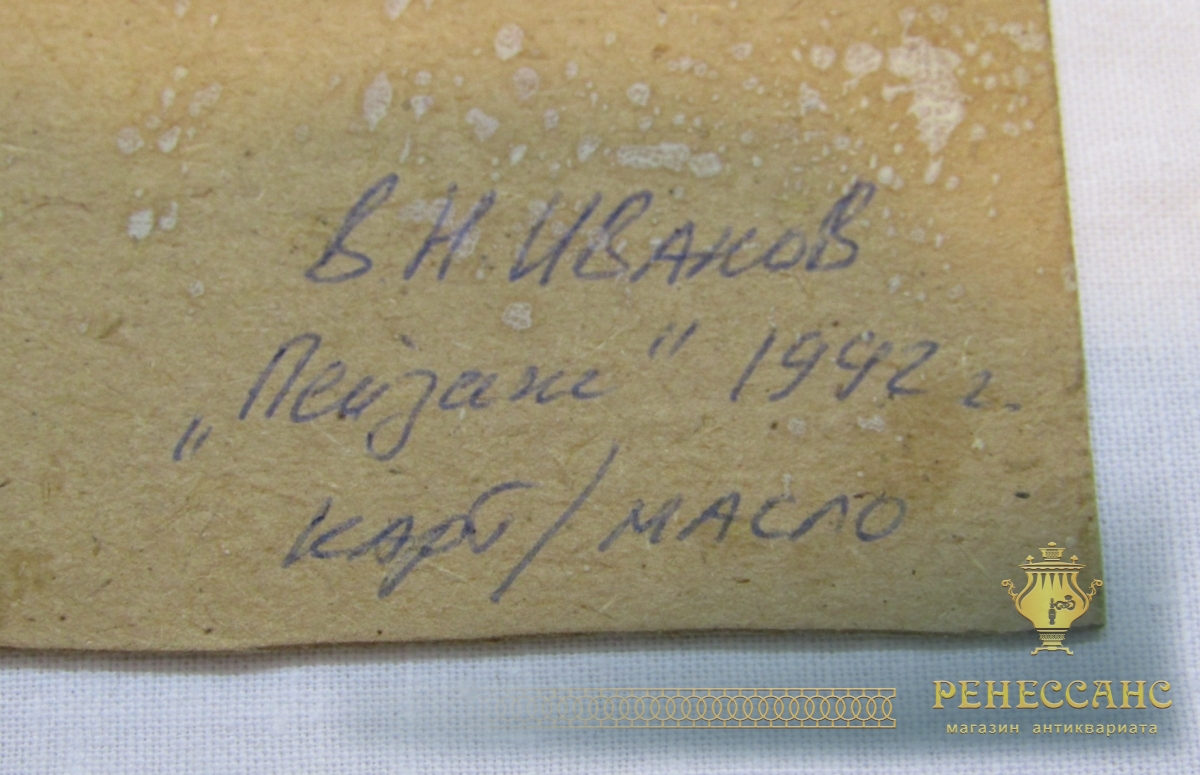 В Н. Иванов
„Пейзаж" 1992 г.
карт/масло
РЕНЕССАНС
магазин антиквариата